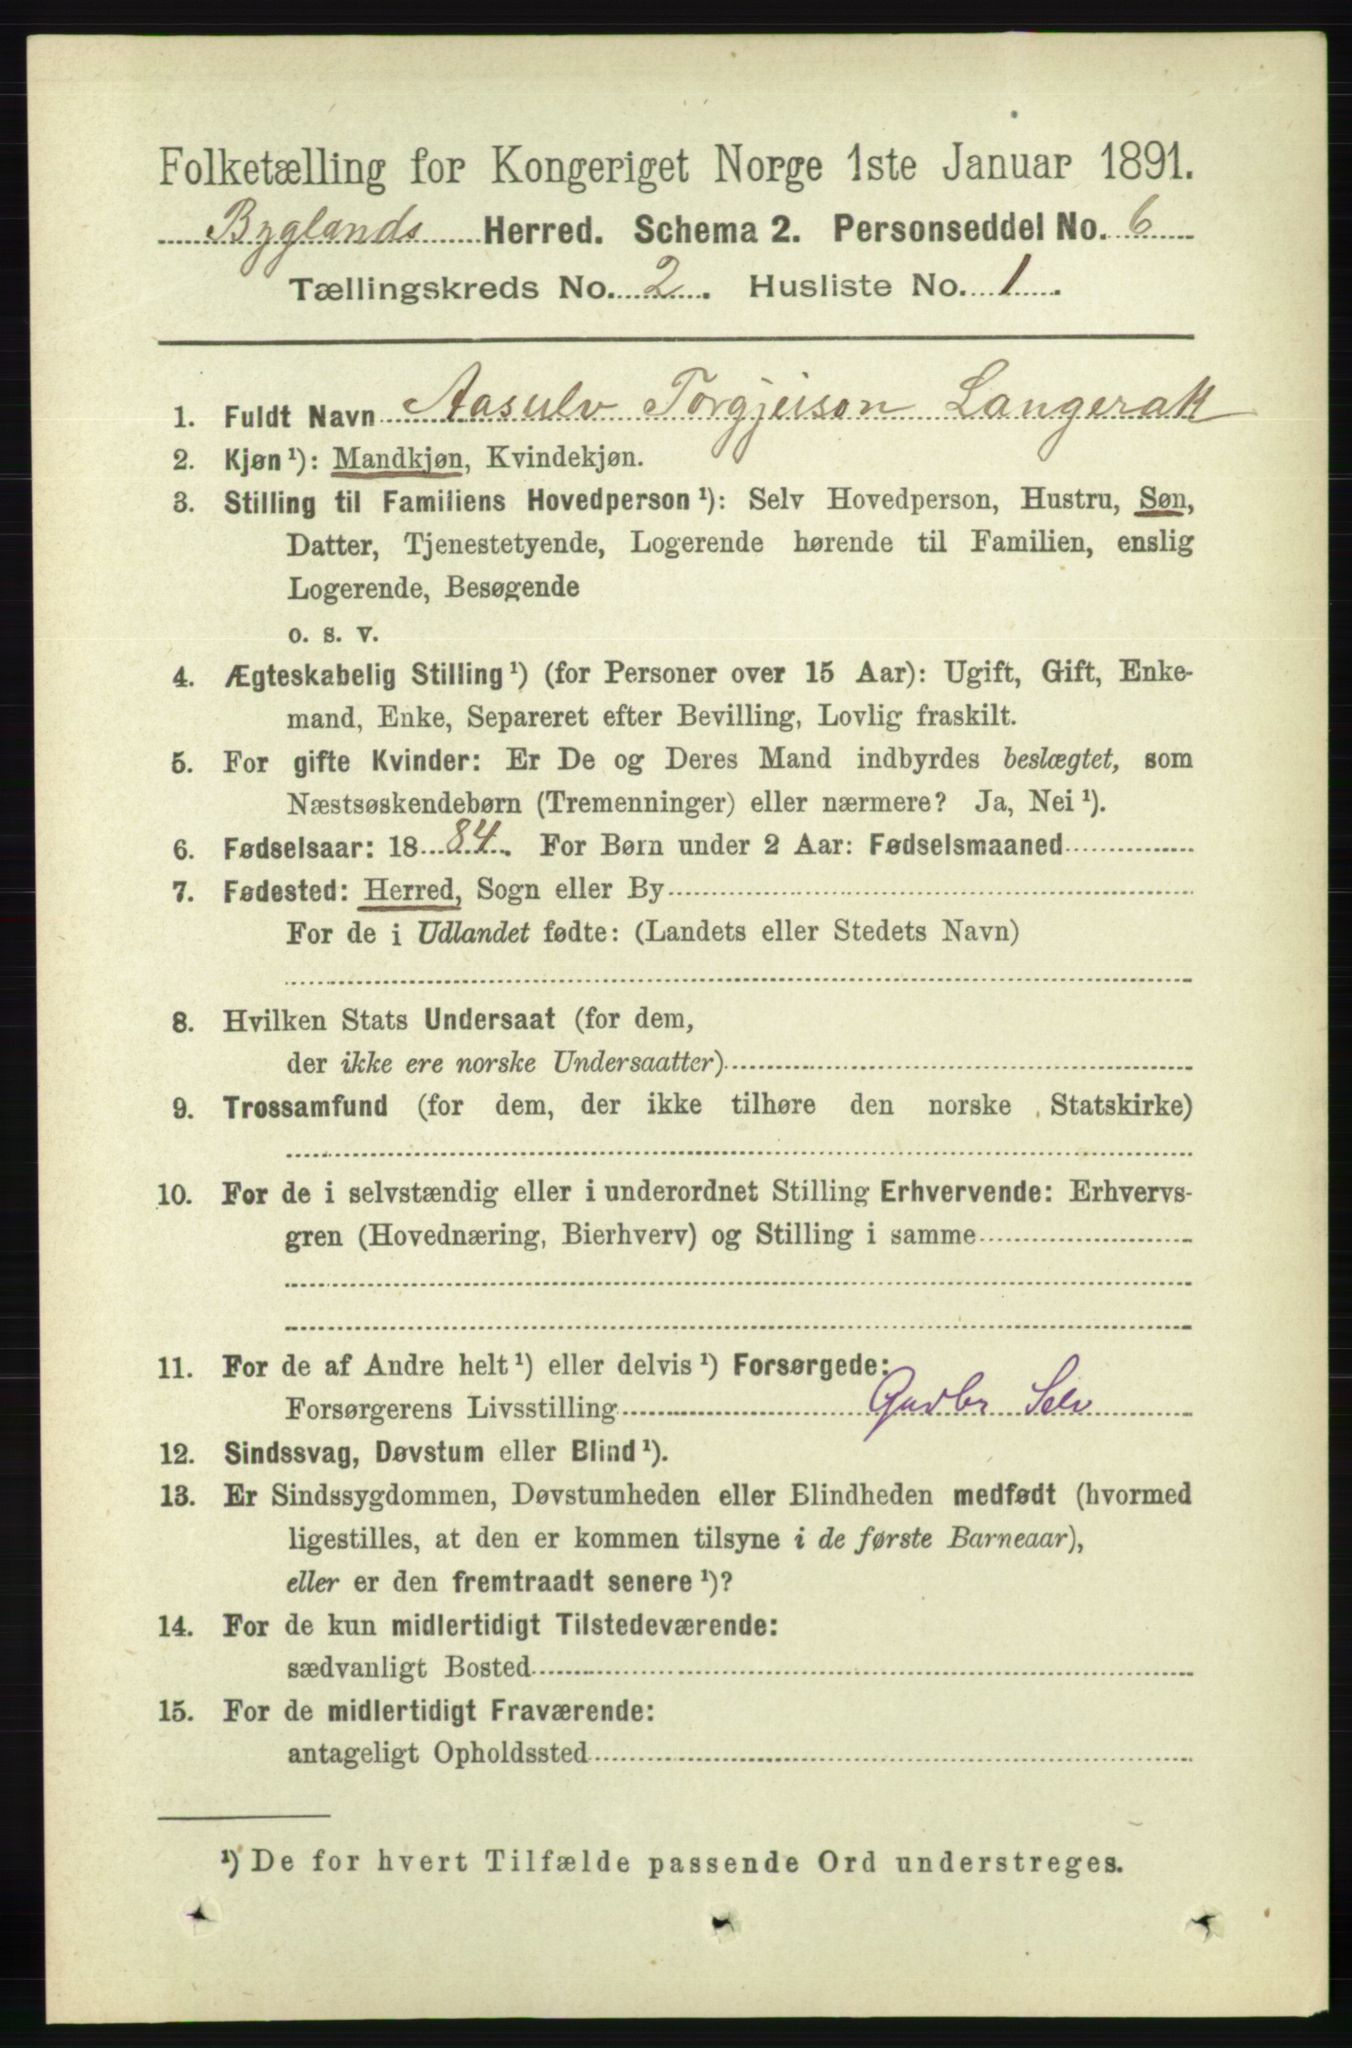 Folketælling for Kongeriget Norge 1ste Januar 1891.
Byglands Herred. Schema 2. Personseddel No. 6
Tællingskreds No. 2. Husliste No. 1.
1. Fuldt Navn Aasulv Torgjeison Langerak
2. Kjøn ¹): Mandkjøn, Kvindekjøn.
3. Stilling til Familiens Hovedperson ¹): Selv Hovedperson, Hustru, Søn,
Datter, Tjenestetyende, Logerende hørende til Familien, enslig
Logerende, Besøgende
o. s. v.
4. Ægteskabelig Stilling ¹) (for Personer over 15 Aar): Ugift, Gift, Enke-
mand, Enke, Separeret efter Bevilling, Lovlig fraskilt.
5. For gifte Kvinder: Er De og Deres Mand indbyrdes beslægtet, som
Næstsøskendebørn (Tremenninger) eller nærmere? Ja, Nei ¹).
6. Fødselsaar: 1884. For Børn under 2 Aar: Fødselsmaaned
7. Fødested: Herred, Sogn eller By
For de i Udlandet fødte: (Landets eller Stedets Navn)
8. Hvilken Stats Undersaat (for dem,
der ikke ere norske Undersaatter)
9. Trossamfund (for dem, der ikke tilhøre den norske Statskirke)
10. For de i selvstændig eller i underordnet Stilling Erhvervende: Erhvervs-
gren (Hovednæring, Bierhverv) og Stilling i samme
11. For de af Andre helt ¹) eller delvis ¹) Forsørgede:
Forsørgerens Livsstilling Gardbr Selv
12. Sindssvag, Døvstum eller Blind ¹).
13. Er Sindssygdommen, Døvstumheden eller Blindheden medfødt (hvormed
ligestilles, at den er kommen tilsyne i de første Barneaar),
eller er den fremtraadt senere ¹)?
14. For de kun midlertidigt Tilstedeværende:
sædvanligt Bosted
15. For de midlertidigt Fraværende:
antageligt Opholdssted
¹) De for hvert Tilfælde passende Ord understreges.